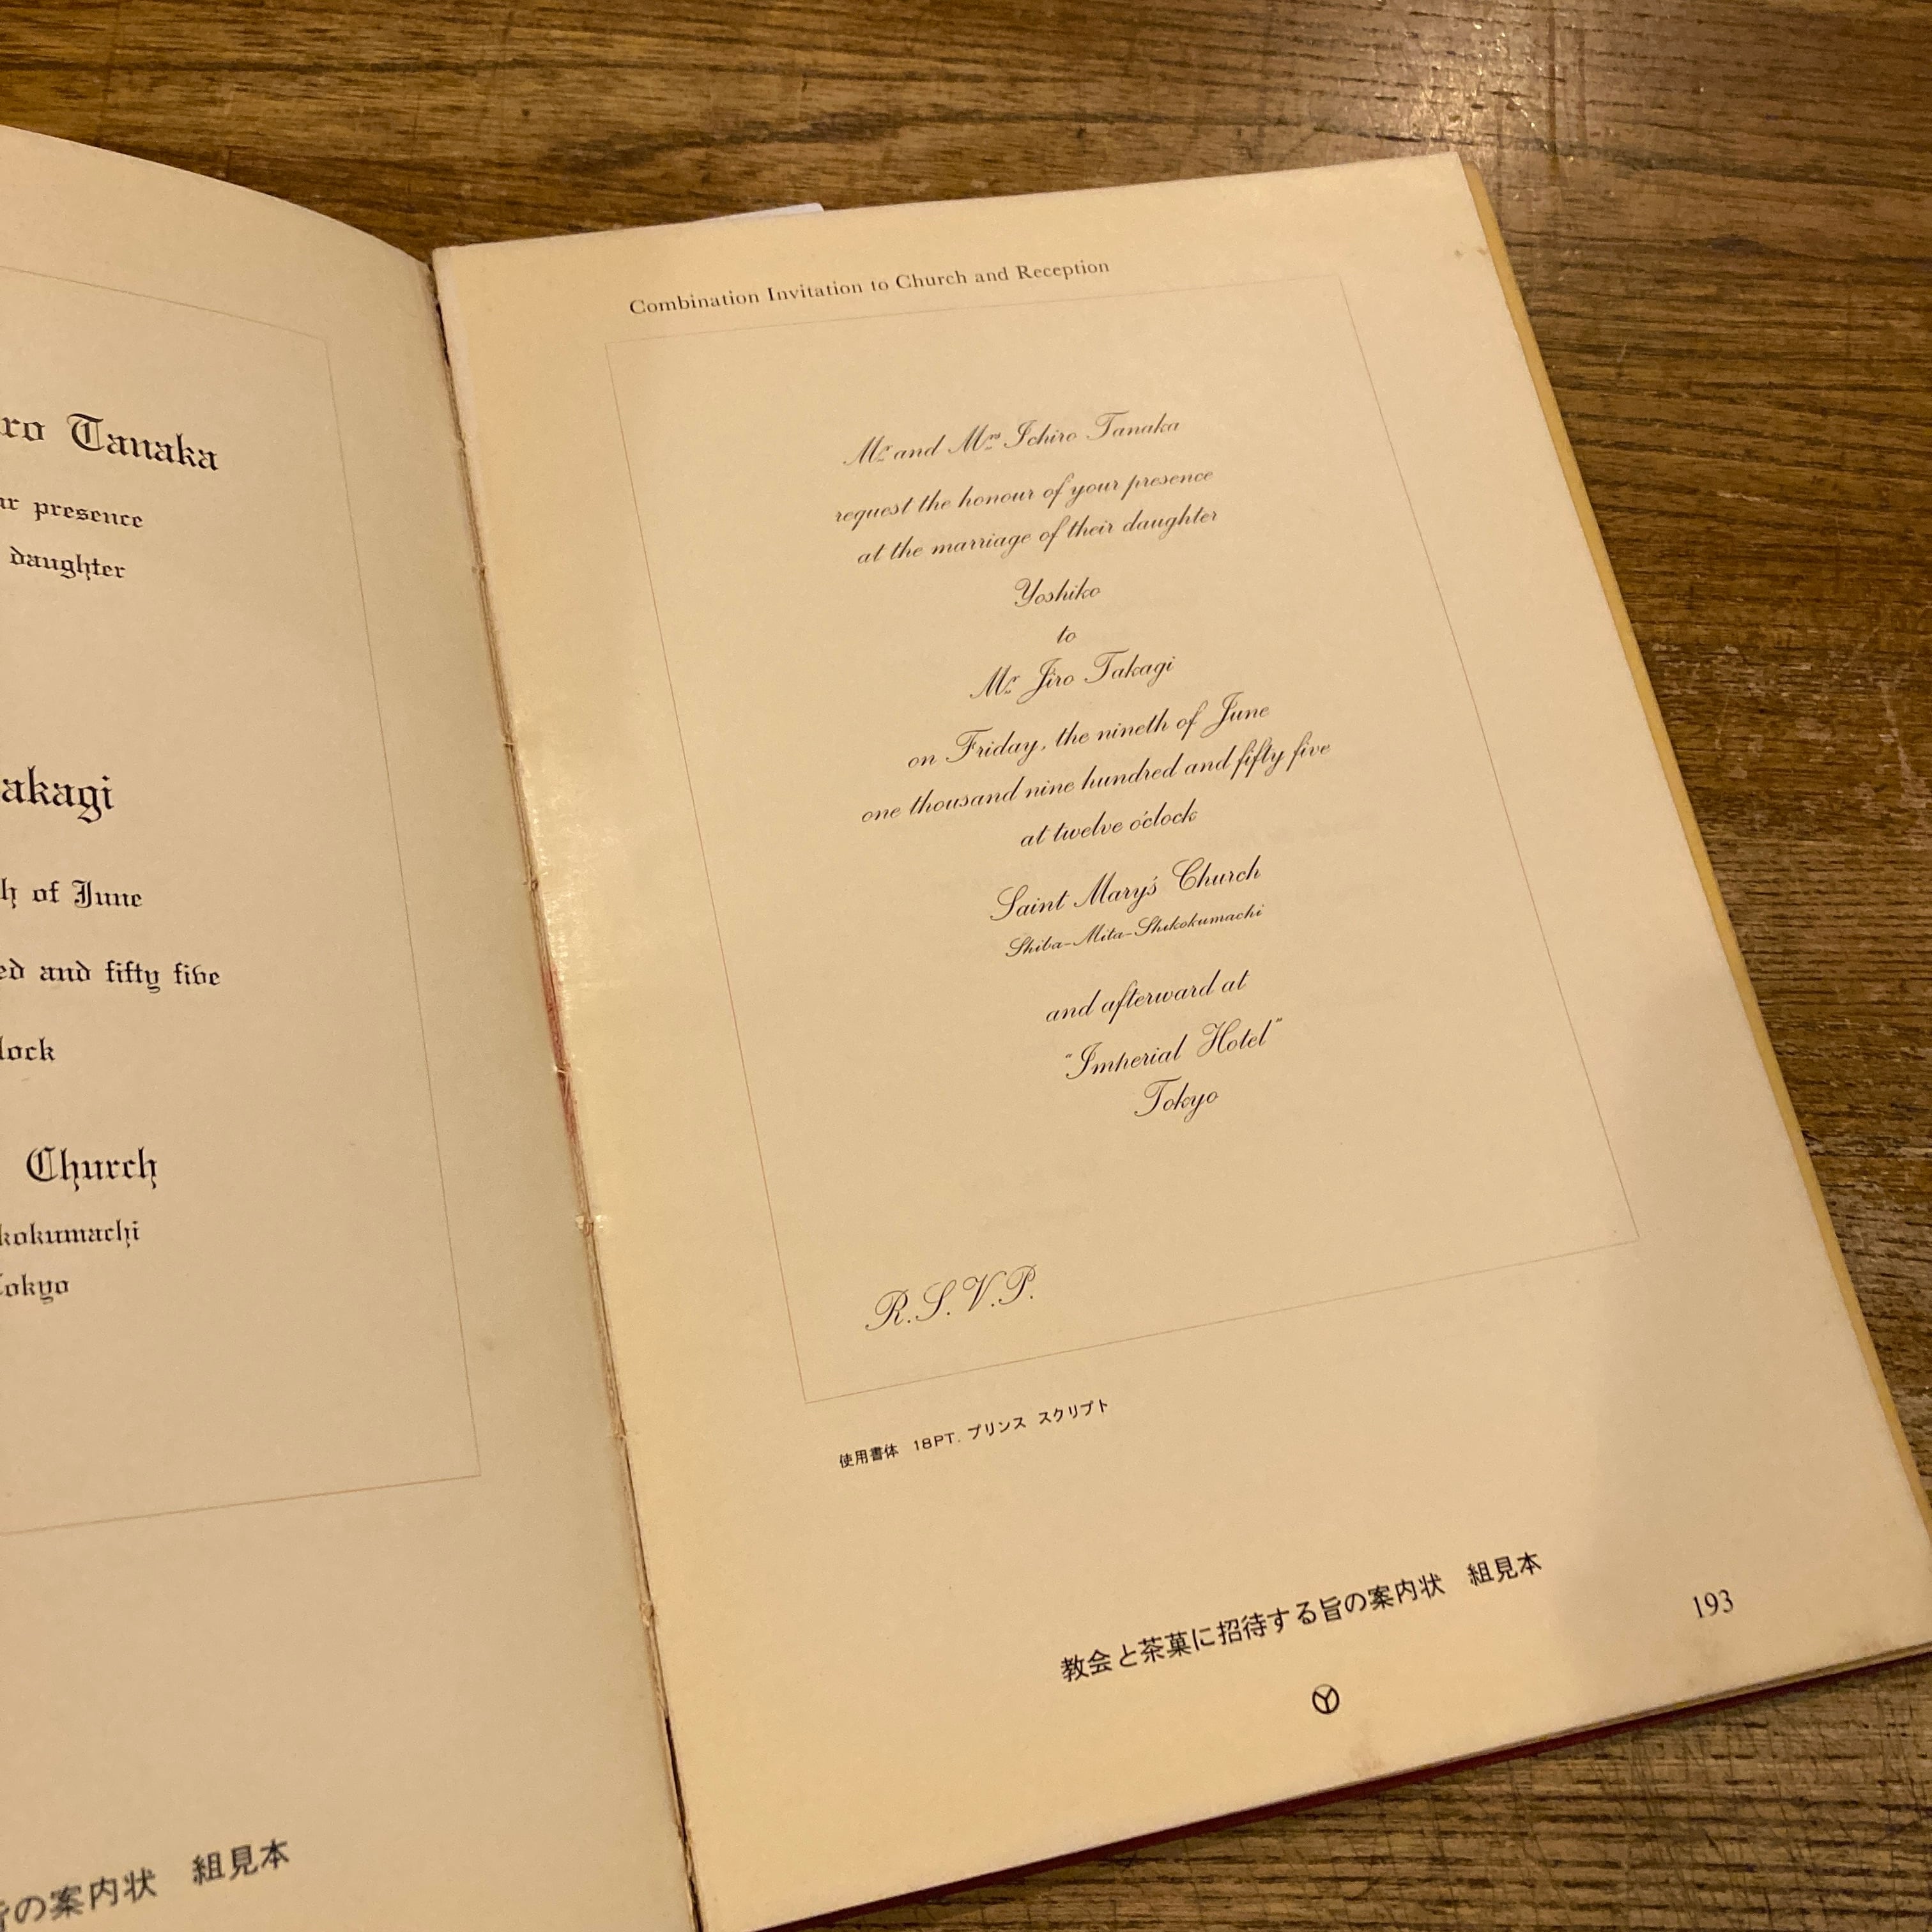 ro Tanaka
presence
daughter
akagi
of June
and fifty five
lock
Church
kokumachi
okyo
の案内状 組見本
Combination Invitation to Church and Reception
Mr and Mrs Ichiro Tanaka
request the honour of your presence
at the marriage of their daughter
Yoshiko
to
Mr Jiro Takagi
on Friday, the nineth of June
one thousand nine hundred and fifty five
at twelve o'clock
Saint Mary's Church
Shiba-Mita-Shikokumachi
and afterward at
"Imperial Hotel"
Tokyo
R.S.V.P.
使用書体 18PT. プリンス スクリプト
教会と茶菓に招待する旨の案内状 組見本
193